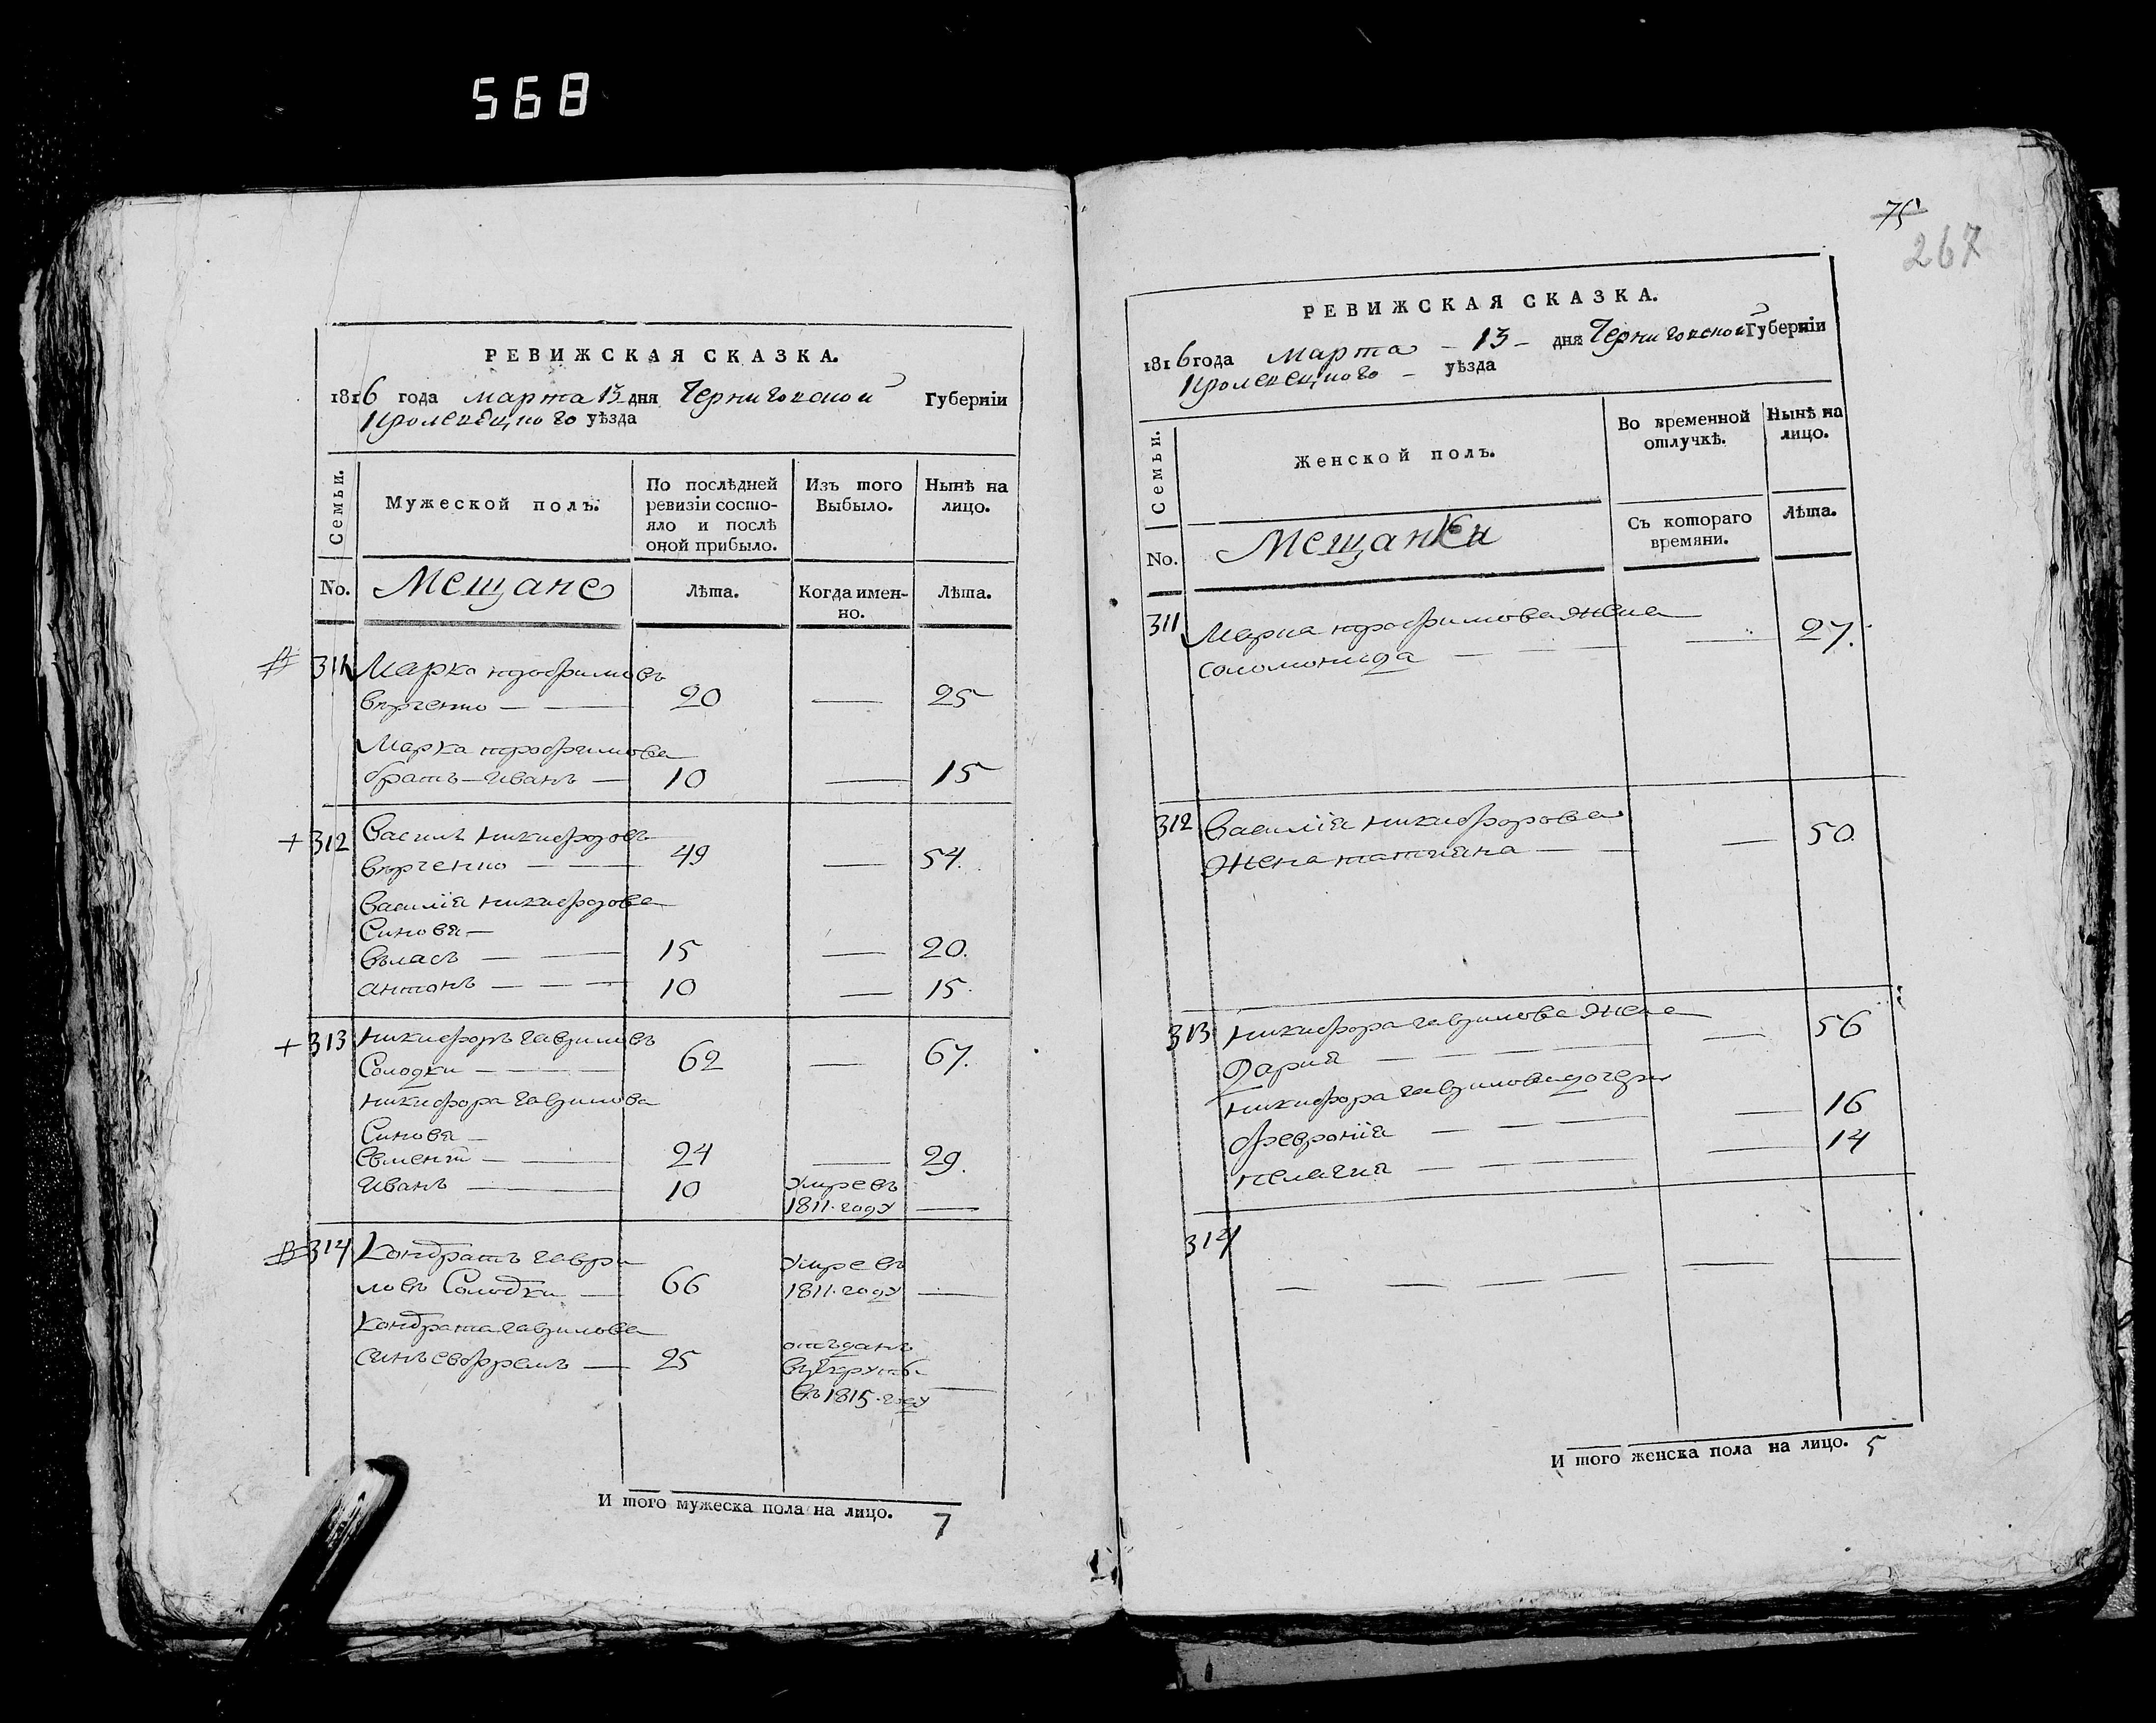 568
РЕВИЖСКАЯ СКАЗКА.
1816 года марта 13 дня Черниговской Губерніи
Кролевецкого уѣзда
Семьи.
Мужеской полъ.
По послѣдней
ревизіи состо-
яло и послѣ
оной прибыло.
Изъ того
Выбыло.
Нынѣ на
лицо.
No.
Мещане
Лѣта.
Когда имен-
но.
Лѣта.
311 Марко Трофимовъ
20 — 25
Марка Трофимова
братъ Иванъ — 10 — 15
+ 312 Василь Никифоровъ
49 — 54.
Василія Никифорова
Синовя —
Власъ — 15 — 20.
Антонъ — 10 — 15.
+ 313 Никифоръ Гавриловъ
Солодки — 62 — 67.
Никифора Гаврилова
Синовя —
24 — 29.
Иванъ — 10 Умре въ
1811. году —
314 Кондратъ Гаври
ловъ Солодки — 66 Умре въ
1811. году —
Кондрата Гаврилова
синъ Евфремъ — 25 отъданъ
въ рекруты
въ 1815. году —
И того мужеска пола на лицо. 7
75
267
РЕВИЖСКАЯ СКАЗКА.
1816 года Марта – 13 – дня Черниговской Губерніи
Кролевецкого – уѣзда
Семьи.
Женской полъ.
Во временной
отлучкѣ.
Нынѣ на
лицо.
No.
Мещанки
Съ котораго
времяни.
Лѣта.
311 Марка Трофимова Жена
Соломонида — — 27.
312 Василія Никифорова
Жена Татияна — — 50.
313 Никифора Гаврилова Жена
Дария — — 56
Никифора Гаврилова дочери
Феврония — — 16
Пелагия — — 14
314
— — — — — —
И того женска пола на лицо. 5